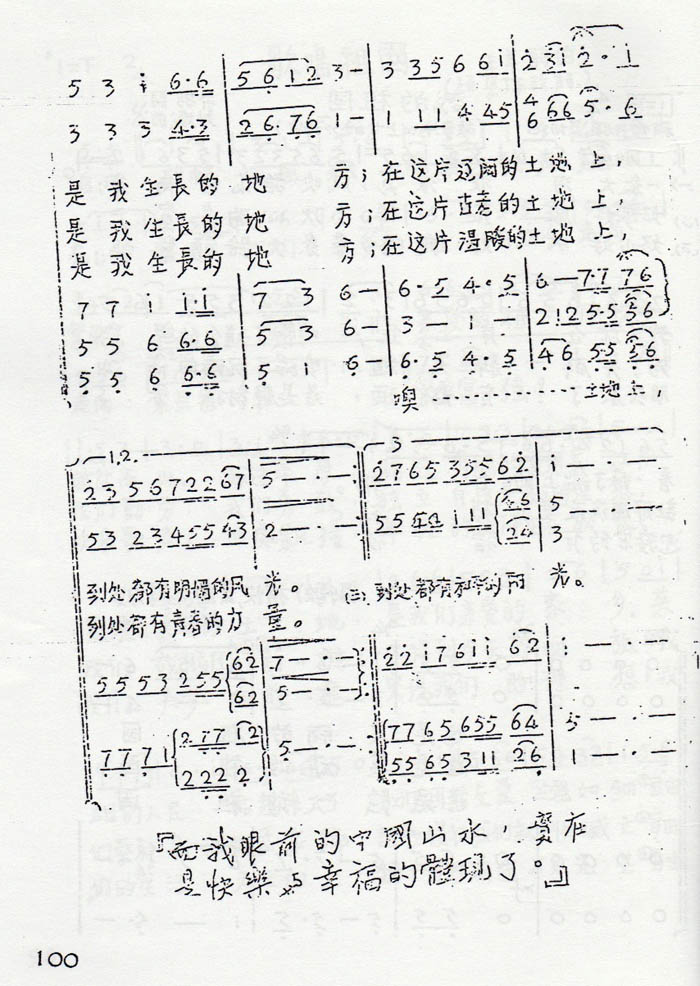 5 3 i 6·6 | 5 6 1 2 3 - | 3 3 5 6 6 i | 2 3 i 2 · i
3 3 3 4·3 | 2 6· 7 6 1 - | 1 1 1 4 4 5 | 6 6 5 · 6
是 我 生 長 的 地 方；在 这 片 辽阔 的 土 地 上
是 我 生 長 的 地 方；在 这 片 古老 的 土 地 上，
是 我 生 長 的 地 方；在 这 片 温暖 的 土 地 上，
7 7 i i·i | 7 3 6 - | 6·5 4·5 | 6 - 7·7 7 6
5 5 6 6·6 | 5 3 6 - | 3 - i - | 2 1 2 5·5 5 6
5 5 6 6·6 | 5 i 6 - | 6·5 4·5 | 4 6 5·5 5 6
噢 土地上
1.2.
3
2 3 5 6 7 2 2 6 7 | 5 - · - · | 2 7 6 5 3 5 5 6 2 | i - · - ·
5 3 2 3 4 5 5 4 3 | 2 - · - ·
到处都有明媚的风 光。
到处都有青春的力 量。
(三) 到处都有和 光。
5 5 5 3 2 5 5 6 2 | 7 - · - ·
6 2 | 5 - · - ·
2 2 i 7 6 i i 6 2 | i - · - ·
7 7 7 1 2 7 7 1 2 | 5 - · - ·
2 2 2 2
7 7 6 5 6 5 5 6 4 | 5 - · - ·
5 5 6 5 3 1 1 2 6
『而我眼前的中國山水，實在
是快樂与幸福的體現了。』
100